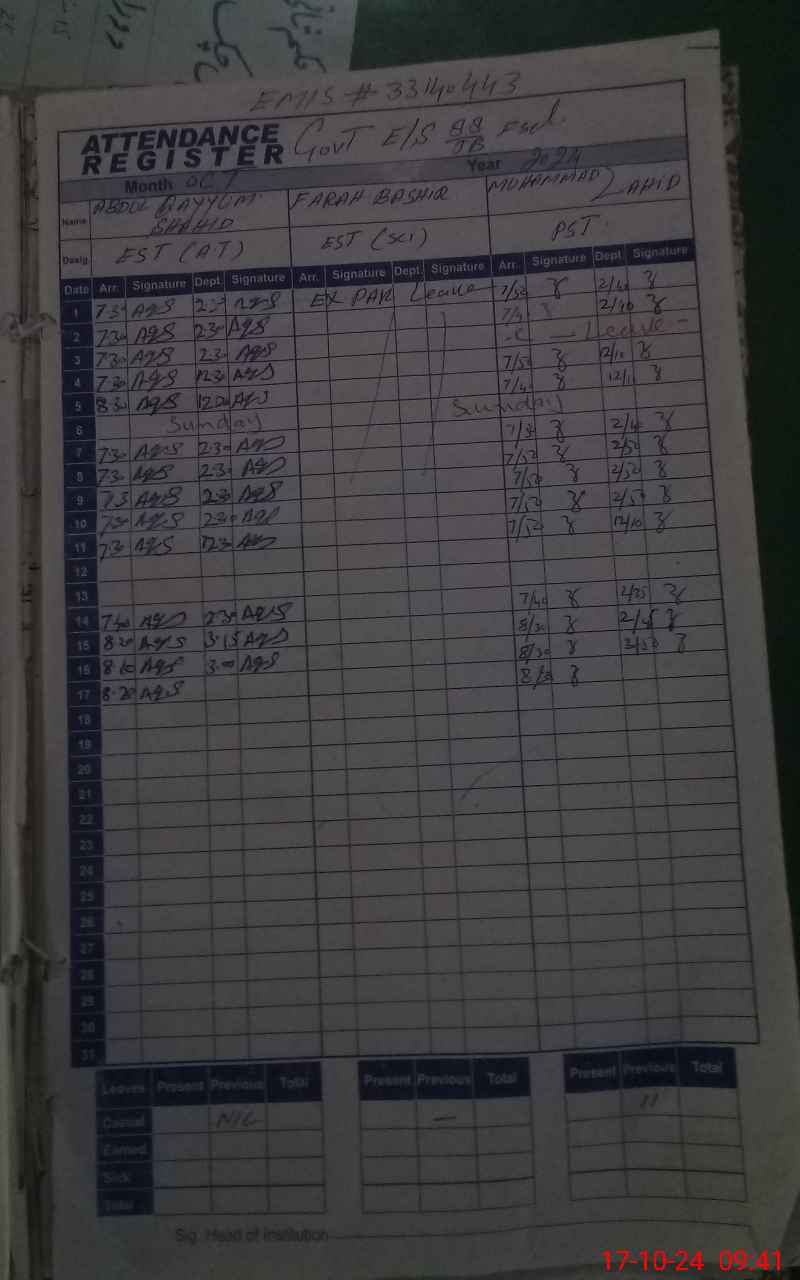 EMIS # 33140443
ATTENDANCE REGISTER
GOVT E/S 88/JB Fsd.
Month OCT Year 2024
Name ABDUL QAYYUM SHAHID FARAH BASHIR MUHAMMAD ZAHID
Desig. EST (A.T) EST (SCI) PST.
Date Arr. Signature Dept. Signature Arr. Signature Dept. Signature Arr. Signature Dept. Signature
1 7.30 AQS 2.30 AQS EX PAK Leave 7/50 2/40
2 7.30 AQS 2.30 AQS 2/40
3 7.30 AQS 2.30 AQS Leave
4 7.30 AQS 12.30 AQS 7/50 12/10
5 8.30 AQS 12.00 AQS 7/40
6 Sunday Sunday
7 7.30 AQS 2.30 AQS 2/40
8 7.30 AQS 2.30 AQS 7/50 2/50
9 7.30 AQS 2.30 AQS 7/50 2/50
10 7.30 AQS 2.30 AQS 7/50 2/50
11 7.30 AQS 12.30 AQS 7/50 12/10
12
13
14 7.40 AQS 2.30 AQS 7/40 2/35
15 8.20 AQS 3.15 AQS 8/30 2/45
16 8.10 AQS 3.00 AQS 8/30 3/50
17 8.20 AQS 8/30
18
19
20
21
22
23
24
25
26
27
28
29
30
31
Leaves Present Previous Total Present Previous Total Present Previous Total
Casual NIL — 11
Earned
Sick
Total
Sig. Head of Institution
17-10-24 09:41